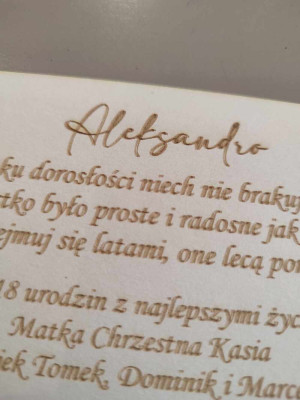 Aleksandro
ku dorosłości niech nie brakuj
tko było proste i radosne jak
ejmuj się latami, one lecą po
18 urodzin z najlepszymi życ
Matka Chrzestna Kasia
jek Tomek, Dominik i Marce